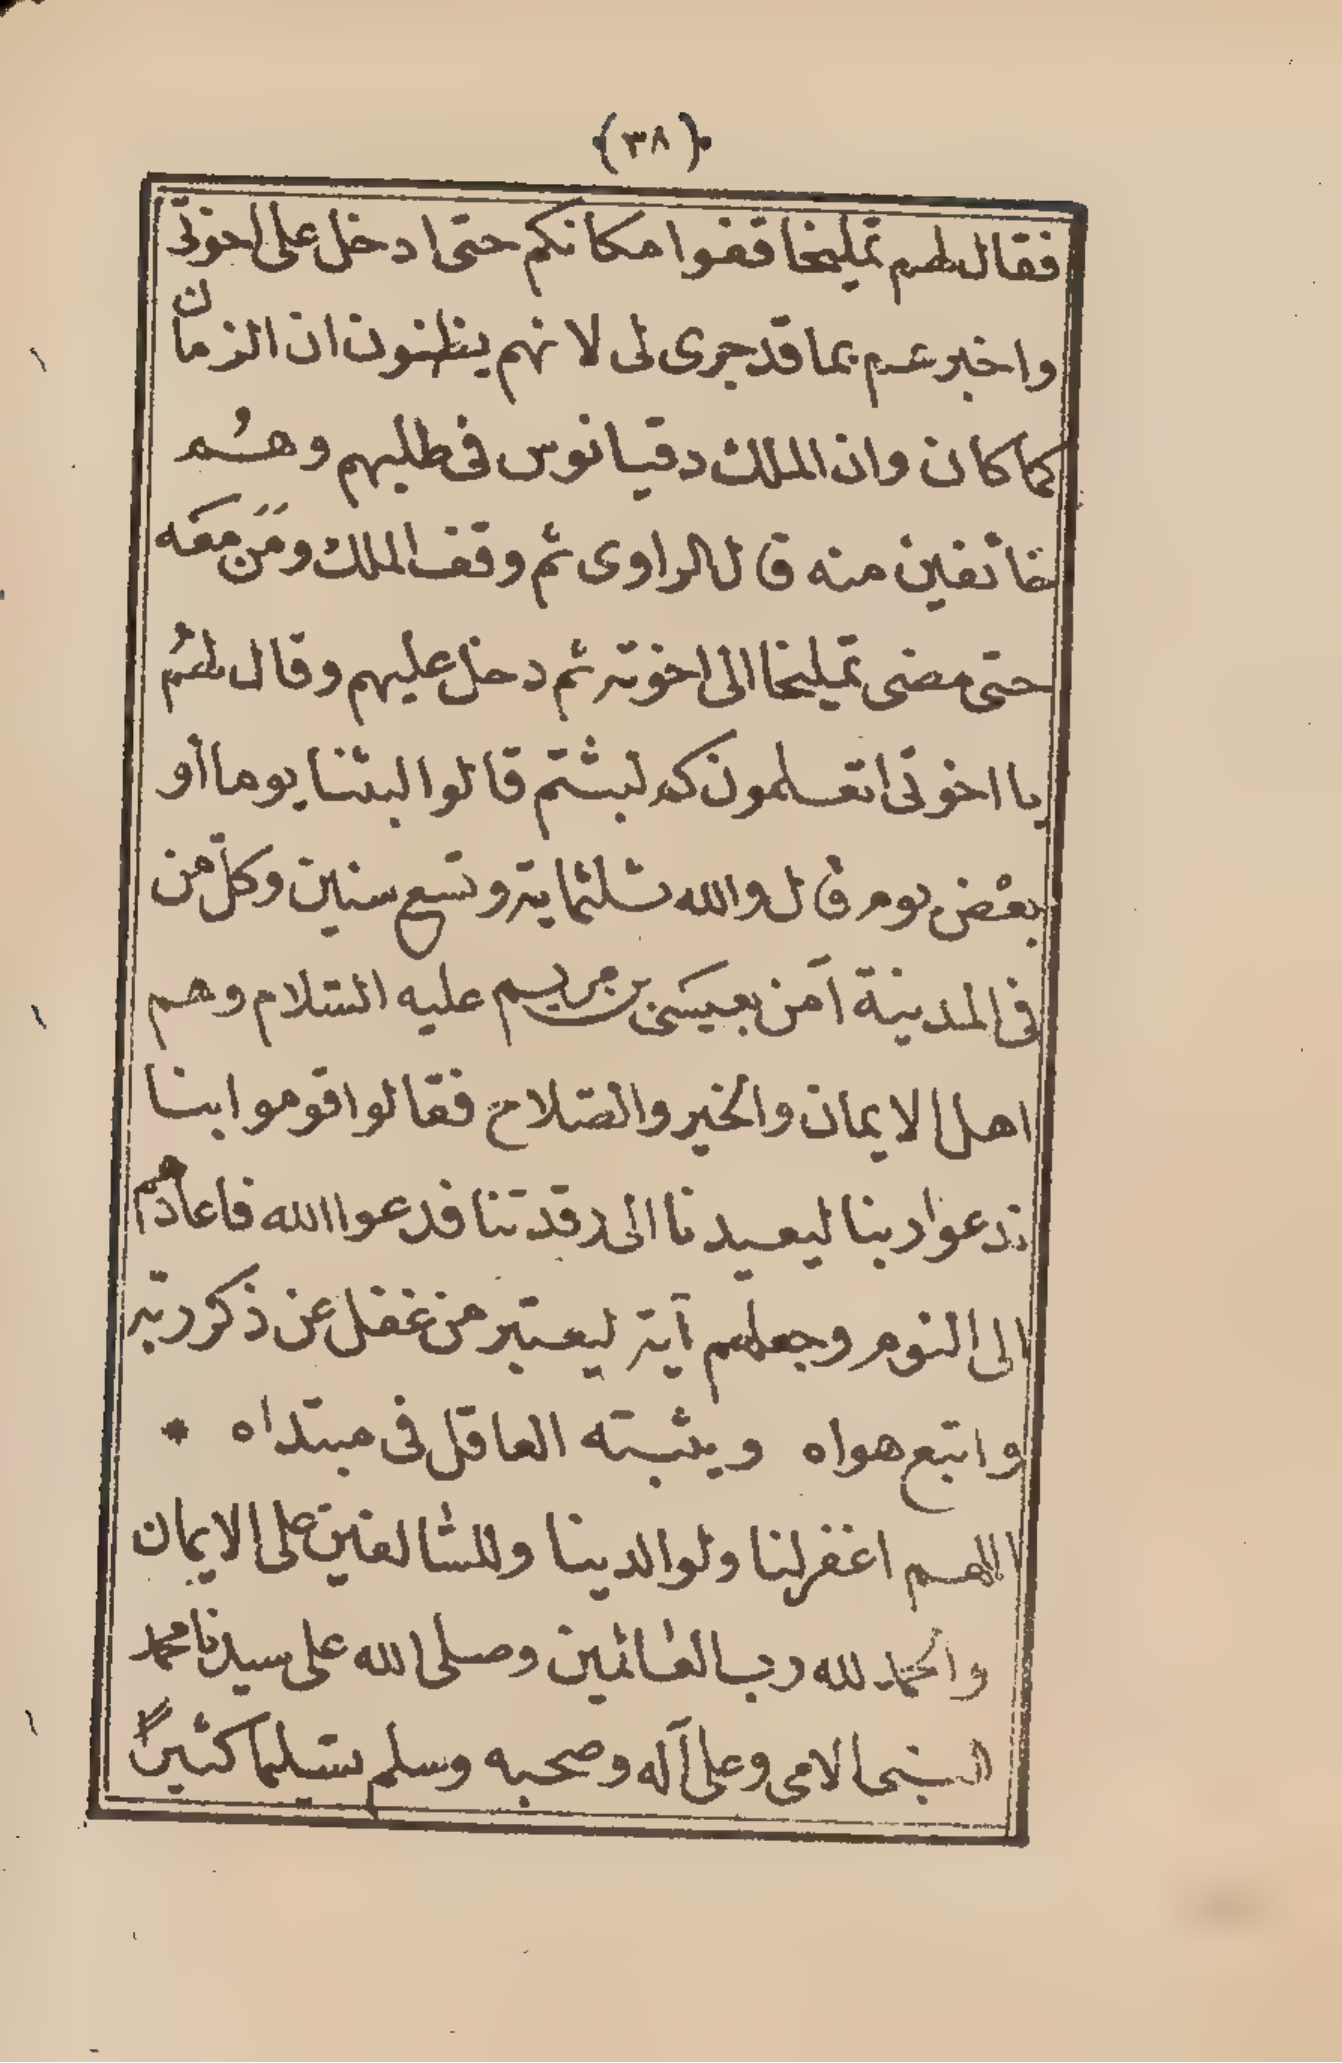 (٣٨)
فقال لهم تمليخا قفوا مكانكم حتى ادخل على اخوتى
واخبرهم بما قد جرى لى لانهم يظنون ان الزمان
كما كان وان الملك دقيانوس فى طلبهم وهُم
خائفين منه قال الراوى ثم وقف الملك ومَن معَه
حتى مضى تمليخا الى اخوته ثم دخل عليهم وقال لهُم
يا اخوتى اتعلمون كم لبثتم قالوا لبثنا يوما أو
بعْض يوم قال والله ثلثماية وتسع سنين وكلّ من
فى المدينة آمن بعيسَى بن مريم عليه السّلام وهم
اهل الايمان والخير والصّلاح فقالوا قوموا بنا
ندعوا ربنا ليعيدنا الى رقدتنا فدعوا الله فاعادهم
الى النوم وجعلهم آية ليعتبر من غفل عن ذكر ربّه
واتبع هواه ويثبته العاقل فى مبتداه *
اللهم اغفر لنا ولوالدينا وللسّالفين على الايمان
والحمد لله رب العالمين وصلى الله على سيدنا محمد
النبى الامى وعلى آله وصحبه وسلم تسليما كثيرًا